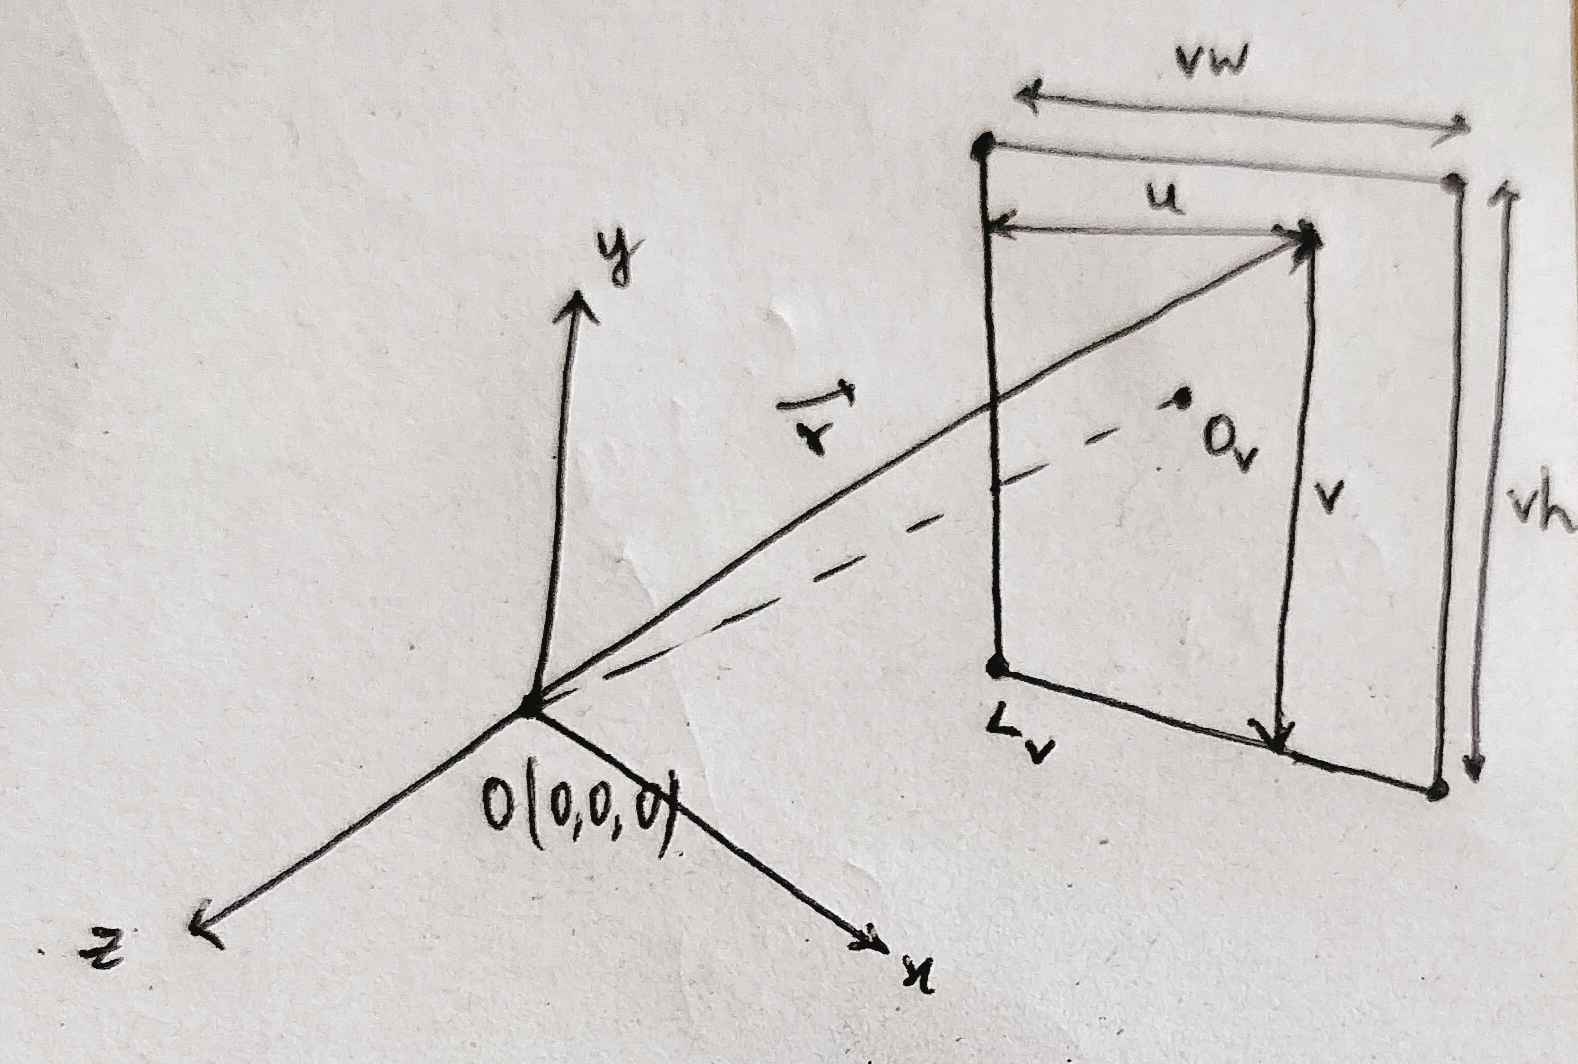 vw
u
y
r
O_v
v
vh
L_v
O(0,0,0)
z
x